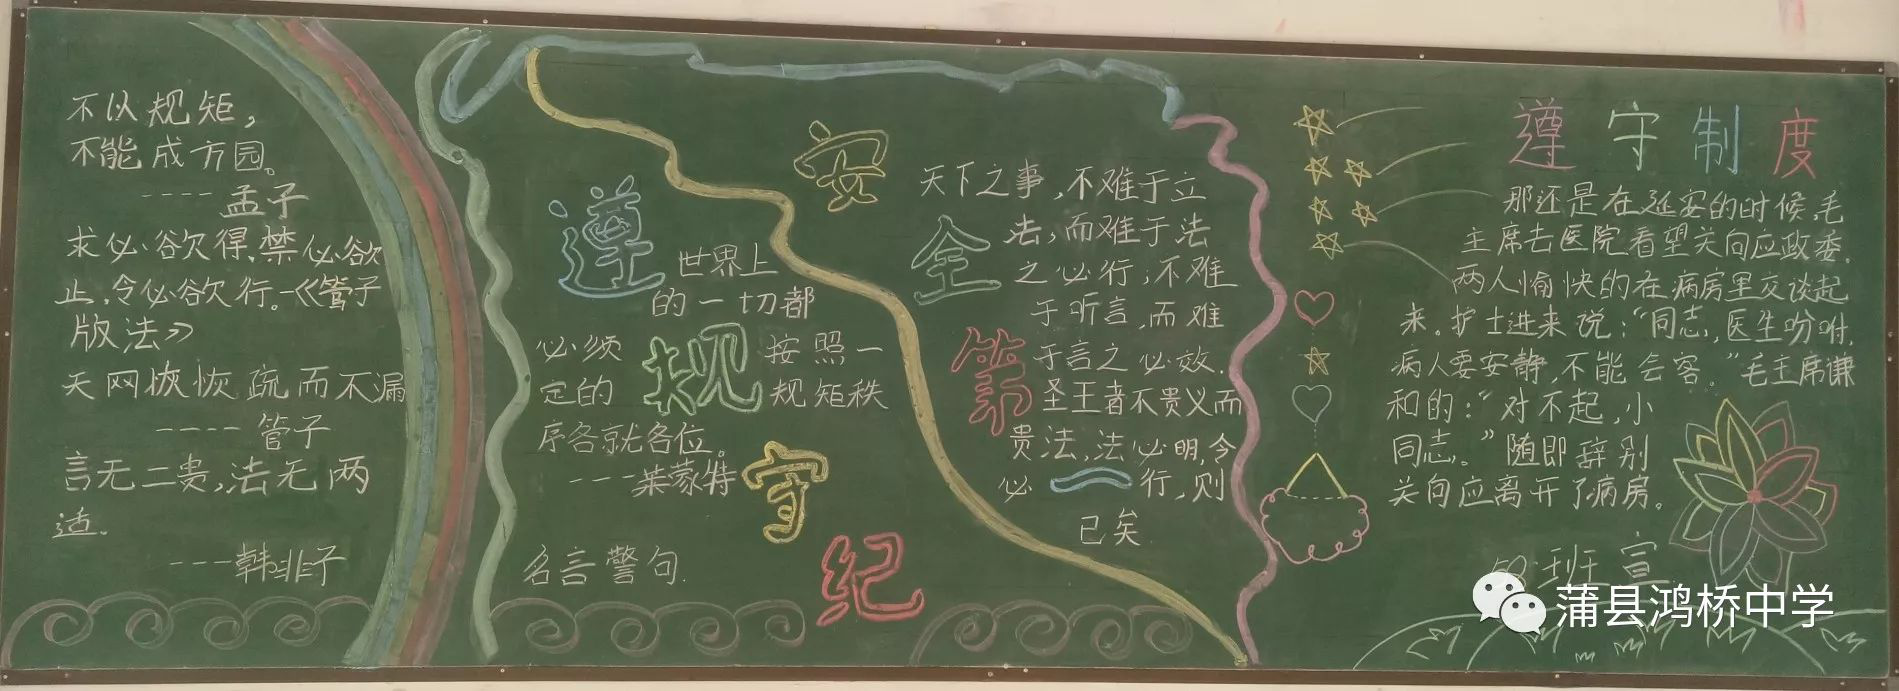 不以规矩,
不能成方园。
----孟子
求必欲得,禁必欲
止,令必欲行。-《管子
版法》
天网恢恢疏而不漏
----管子
言无二贵,法无两
适。
---韩非子
遵
规
守
纪
世界上
的一切都
必须按照一
定的规矩秩
序各就各位。
---莱蒙特
名言警句.
安
全
第
一
天下之事,不难于立
法,而难于法
之必行;不难
于听言,而难
于言之必效.
圣王者不贵义而
贵法,法必明,令
必行,则
已矣.
遵守制度
那还是在延安的时候,毛
主席去医院看望关向应政委.
两人愉快的在病房里交谈起
来。护士进来说:“同志,医生吩咐,
病人要安静,不能会客。”毛主席谦
和的:“对不起,小
同志。”随即辞别
关向应离开了病房。
班宣
蒲县鸿桥中学